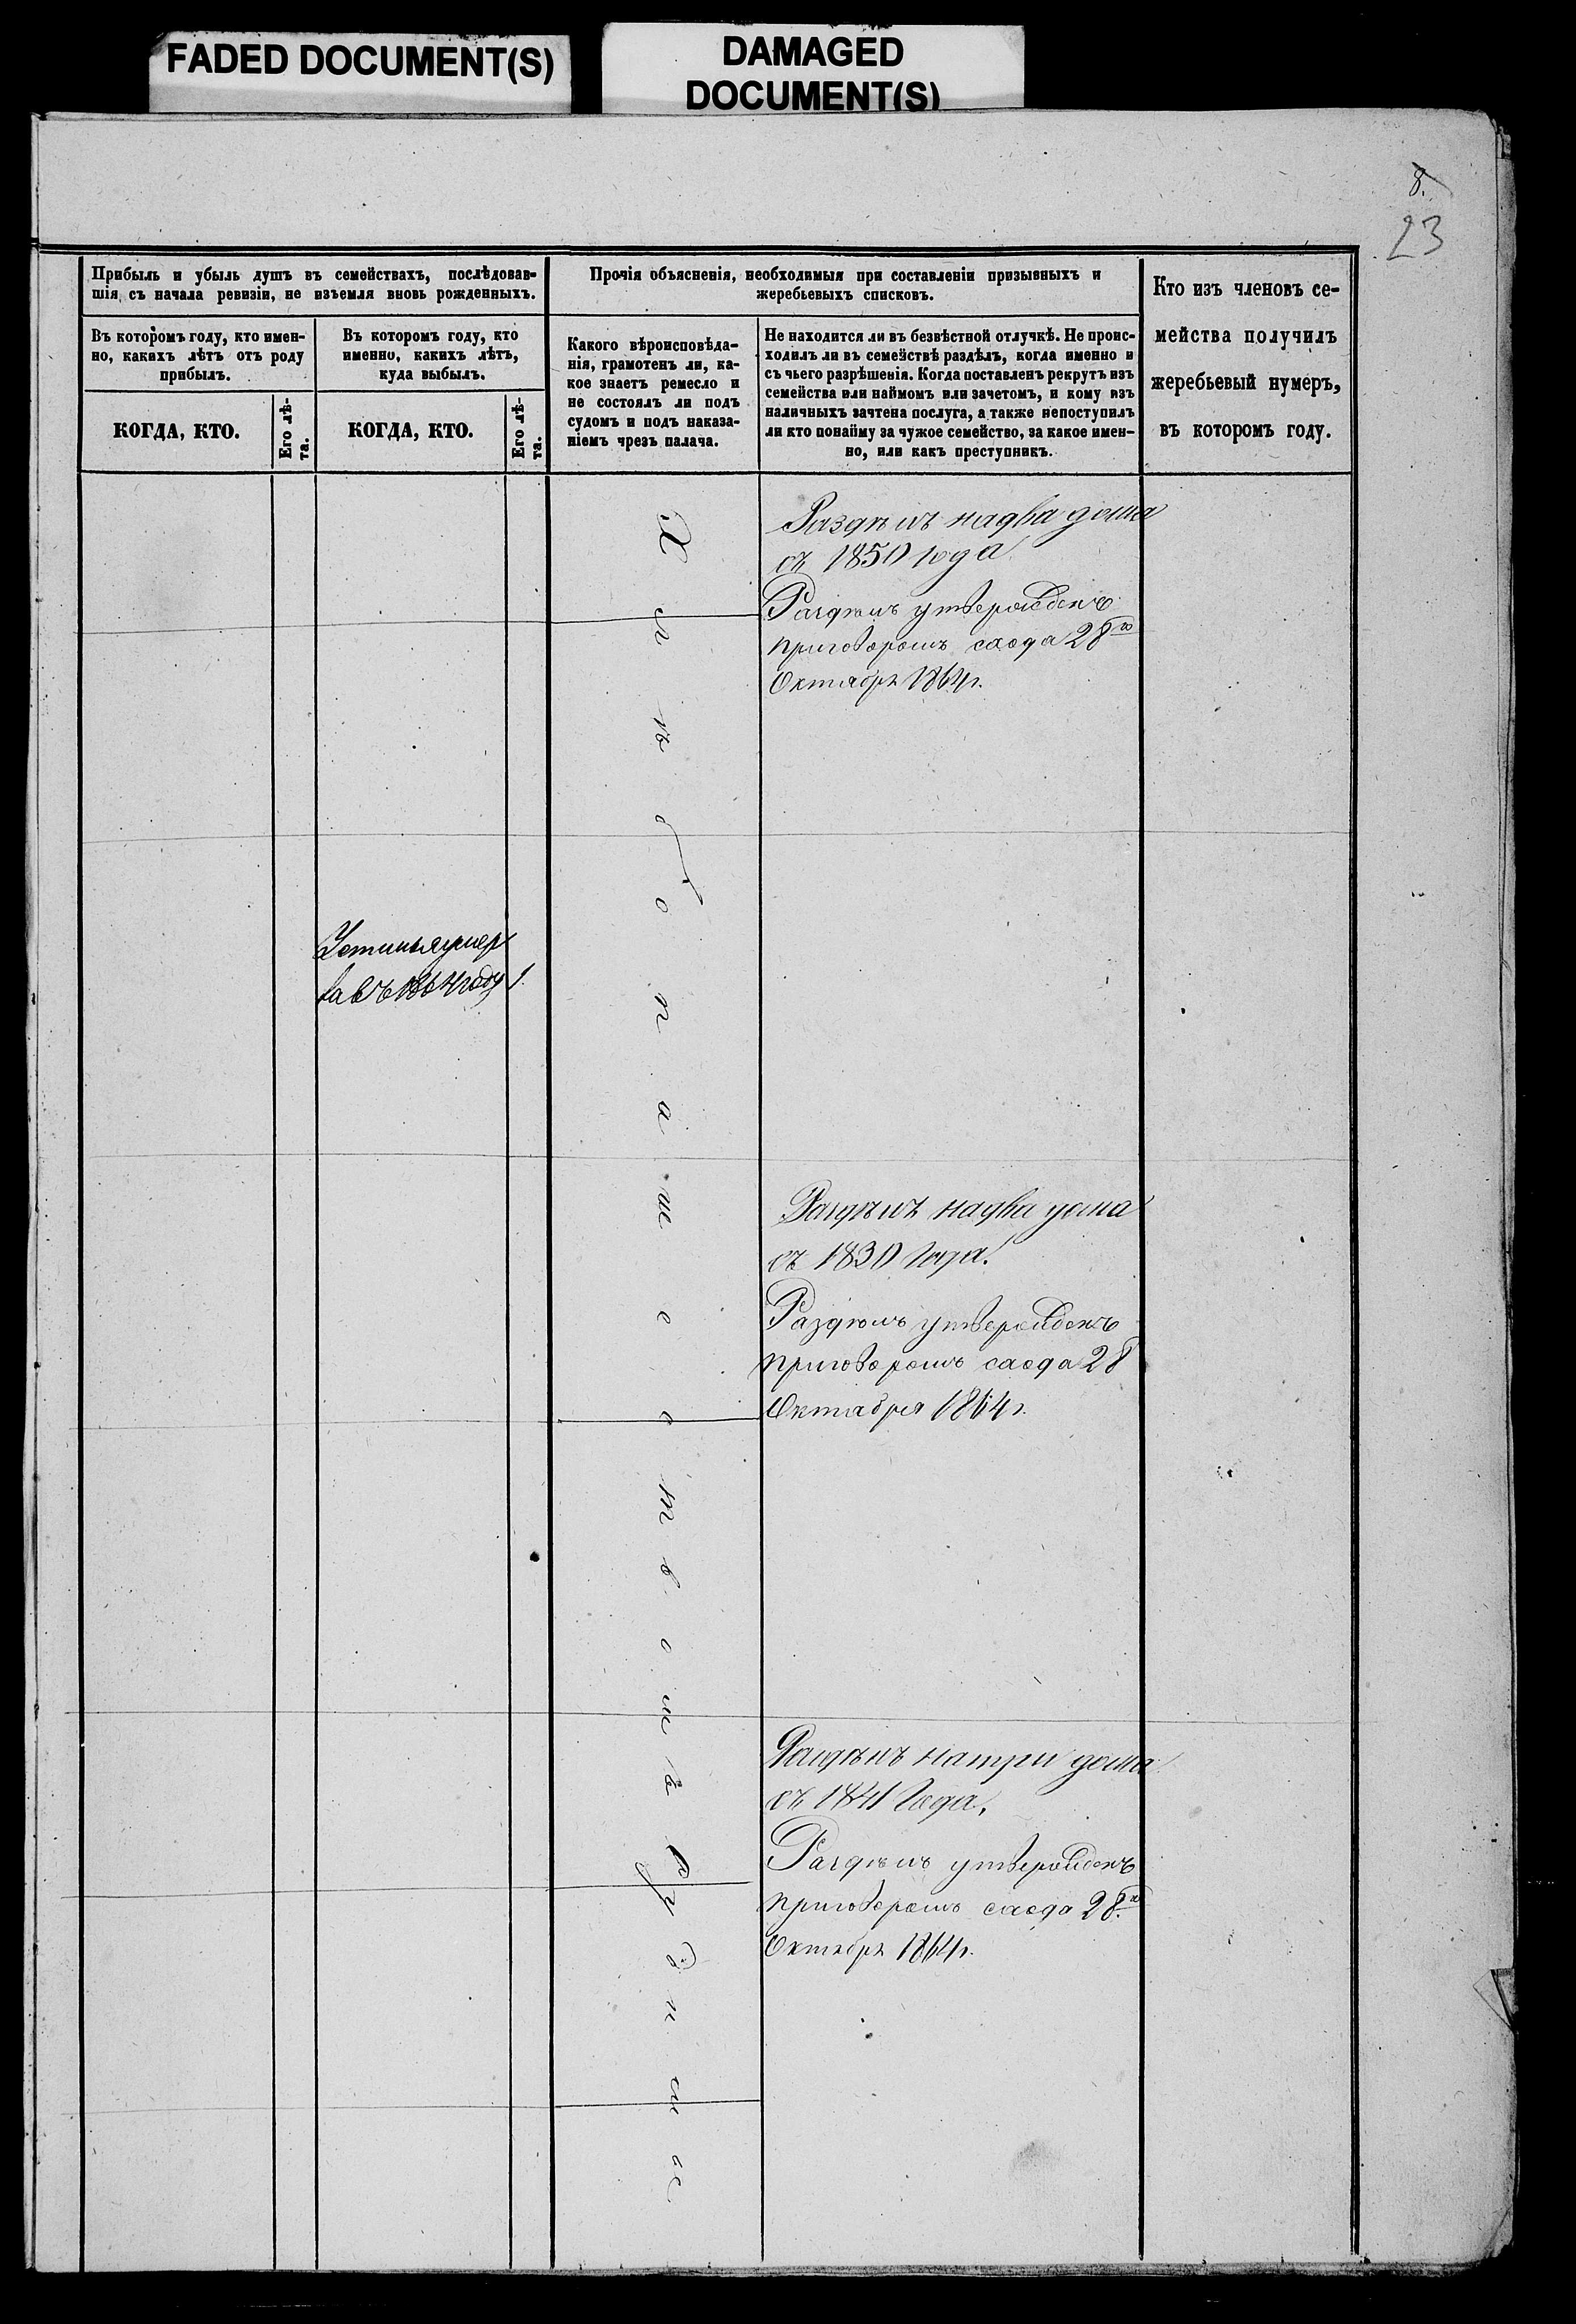 FADED DOCUMENT(S)
DAMAGED
DOCUMENT(S)
8.
23
Прибыль и убыль душъ въ семействахъ, послѣдовав-
шія съ начала ревизіи, не изъемля вновь рожденныхъ.
Прочія объясненія, необходимыя при составленіи призывныхъ и
жеребьевыхъ списковъ.
Кто изъ членовъ се-
мейства получилъ
жеребьевый нумеръ,
въ которомъ году.
Въ которомъ году, кто имен-
но, какихъ лѣтъ отъ роду
прибылъ.
Въ которомъ году, кто
именно, какихъ лѣтъ,
куда выбылъ.
Какого вѣроисповѣда-
нія, грамотенъ ли, ка-
кое знаетъ ремесло и
не состоялъ ли подъ
судомъ и подъ наказа-
ніемъ чрезъ палача.
Не находится ли въ безвѣстной отлучкѣ. Не проис-
ходилъ ли въ семействѣ раздѣлъ, когда именно и
съ чьего разрѣшенія. Когда поставленъ рекрутъ изъ
семейства или наймомъ или зачетомъ, и кому изъ
наличныхъ зачтена послуга, а также непоступилъ
ли кто понайму за чужое семейство, за какое имен-
но, или какъ преступникъ.
КОГДА, КТО.
Его лѣ-
та.
КОГДА, КТО.
Его лѣ-
та.
Раздѣлъ надва дома
съ 1850 года
Раздѣлъ утвержденъ
приговоромъ схода 28го
Октября 1864г.
Устинья умер
ла въ 1864 году 1.
Раздѣлъ надва дома
съ 1830 года.
Раздѣлъ утвержденъ
приговоромъ схода 28
Октября 1864г.
Раздѣлъ натри дома
съ 1841 года.
Раздѣлъ утвержденъ
приговоромъ схода 28го
Октября 1864г.
Хлѣбопашествомъ